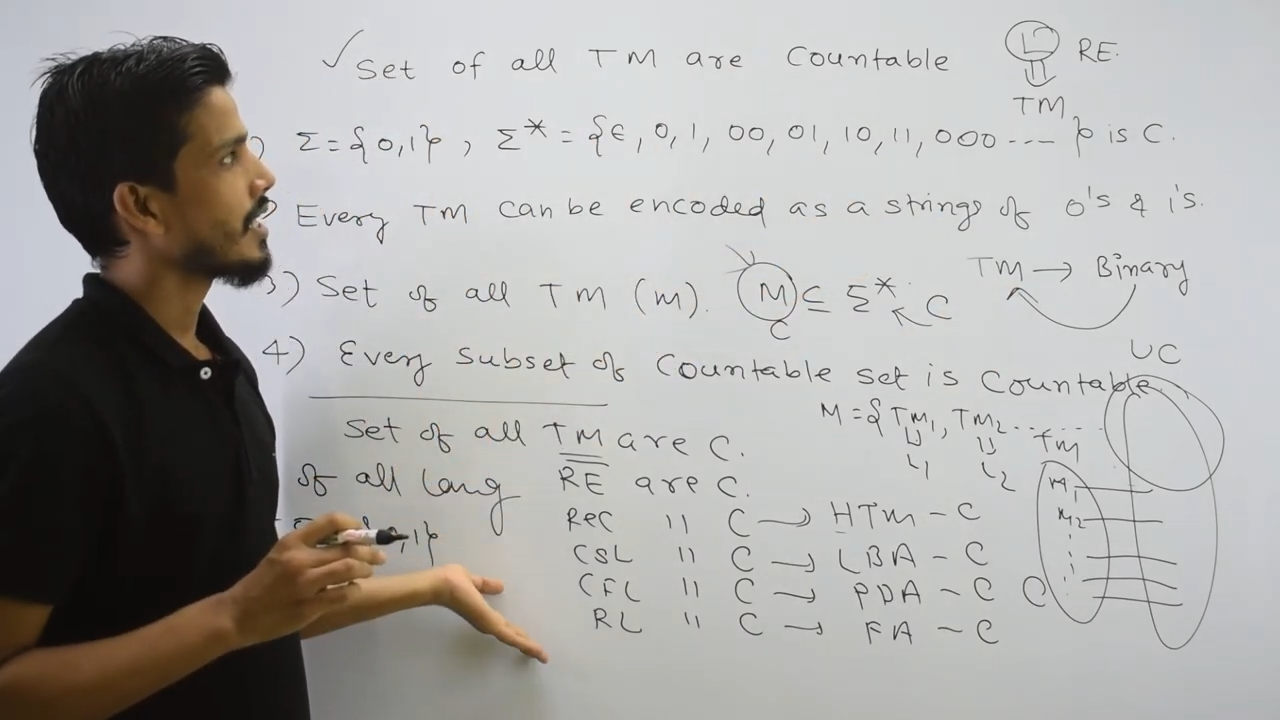 ✓ Set of all TM are Countable
L RE.
TM
) Σ={0,1}, Σ* = {ϵ, 0, 1, 00, 01, 10, 11, 000 ---- } is C.
Every TM can be encoded as a strings of 0's & 1's.
TM → Binary
3) Set of all TM (M). M ⊆ Σ* C
C
4) Every Subset of Countable set is Countable.
UC
M = {TM1, TM2 ......
L1 L2
Set of all TM are C.
of all lang RE are C.
REC 〃 C → HTM - C
CSL 〃 C → LBA - C
CFL 〃 C → PDA - C
RL 〃 C → FA - C
,1}
TM
M1
M2
C